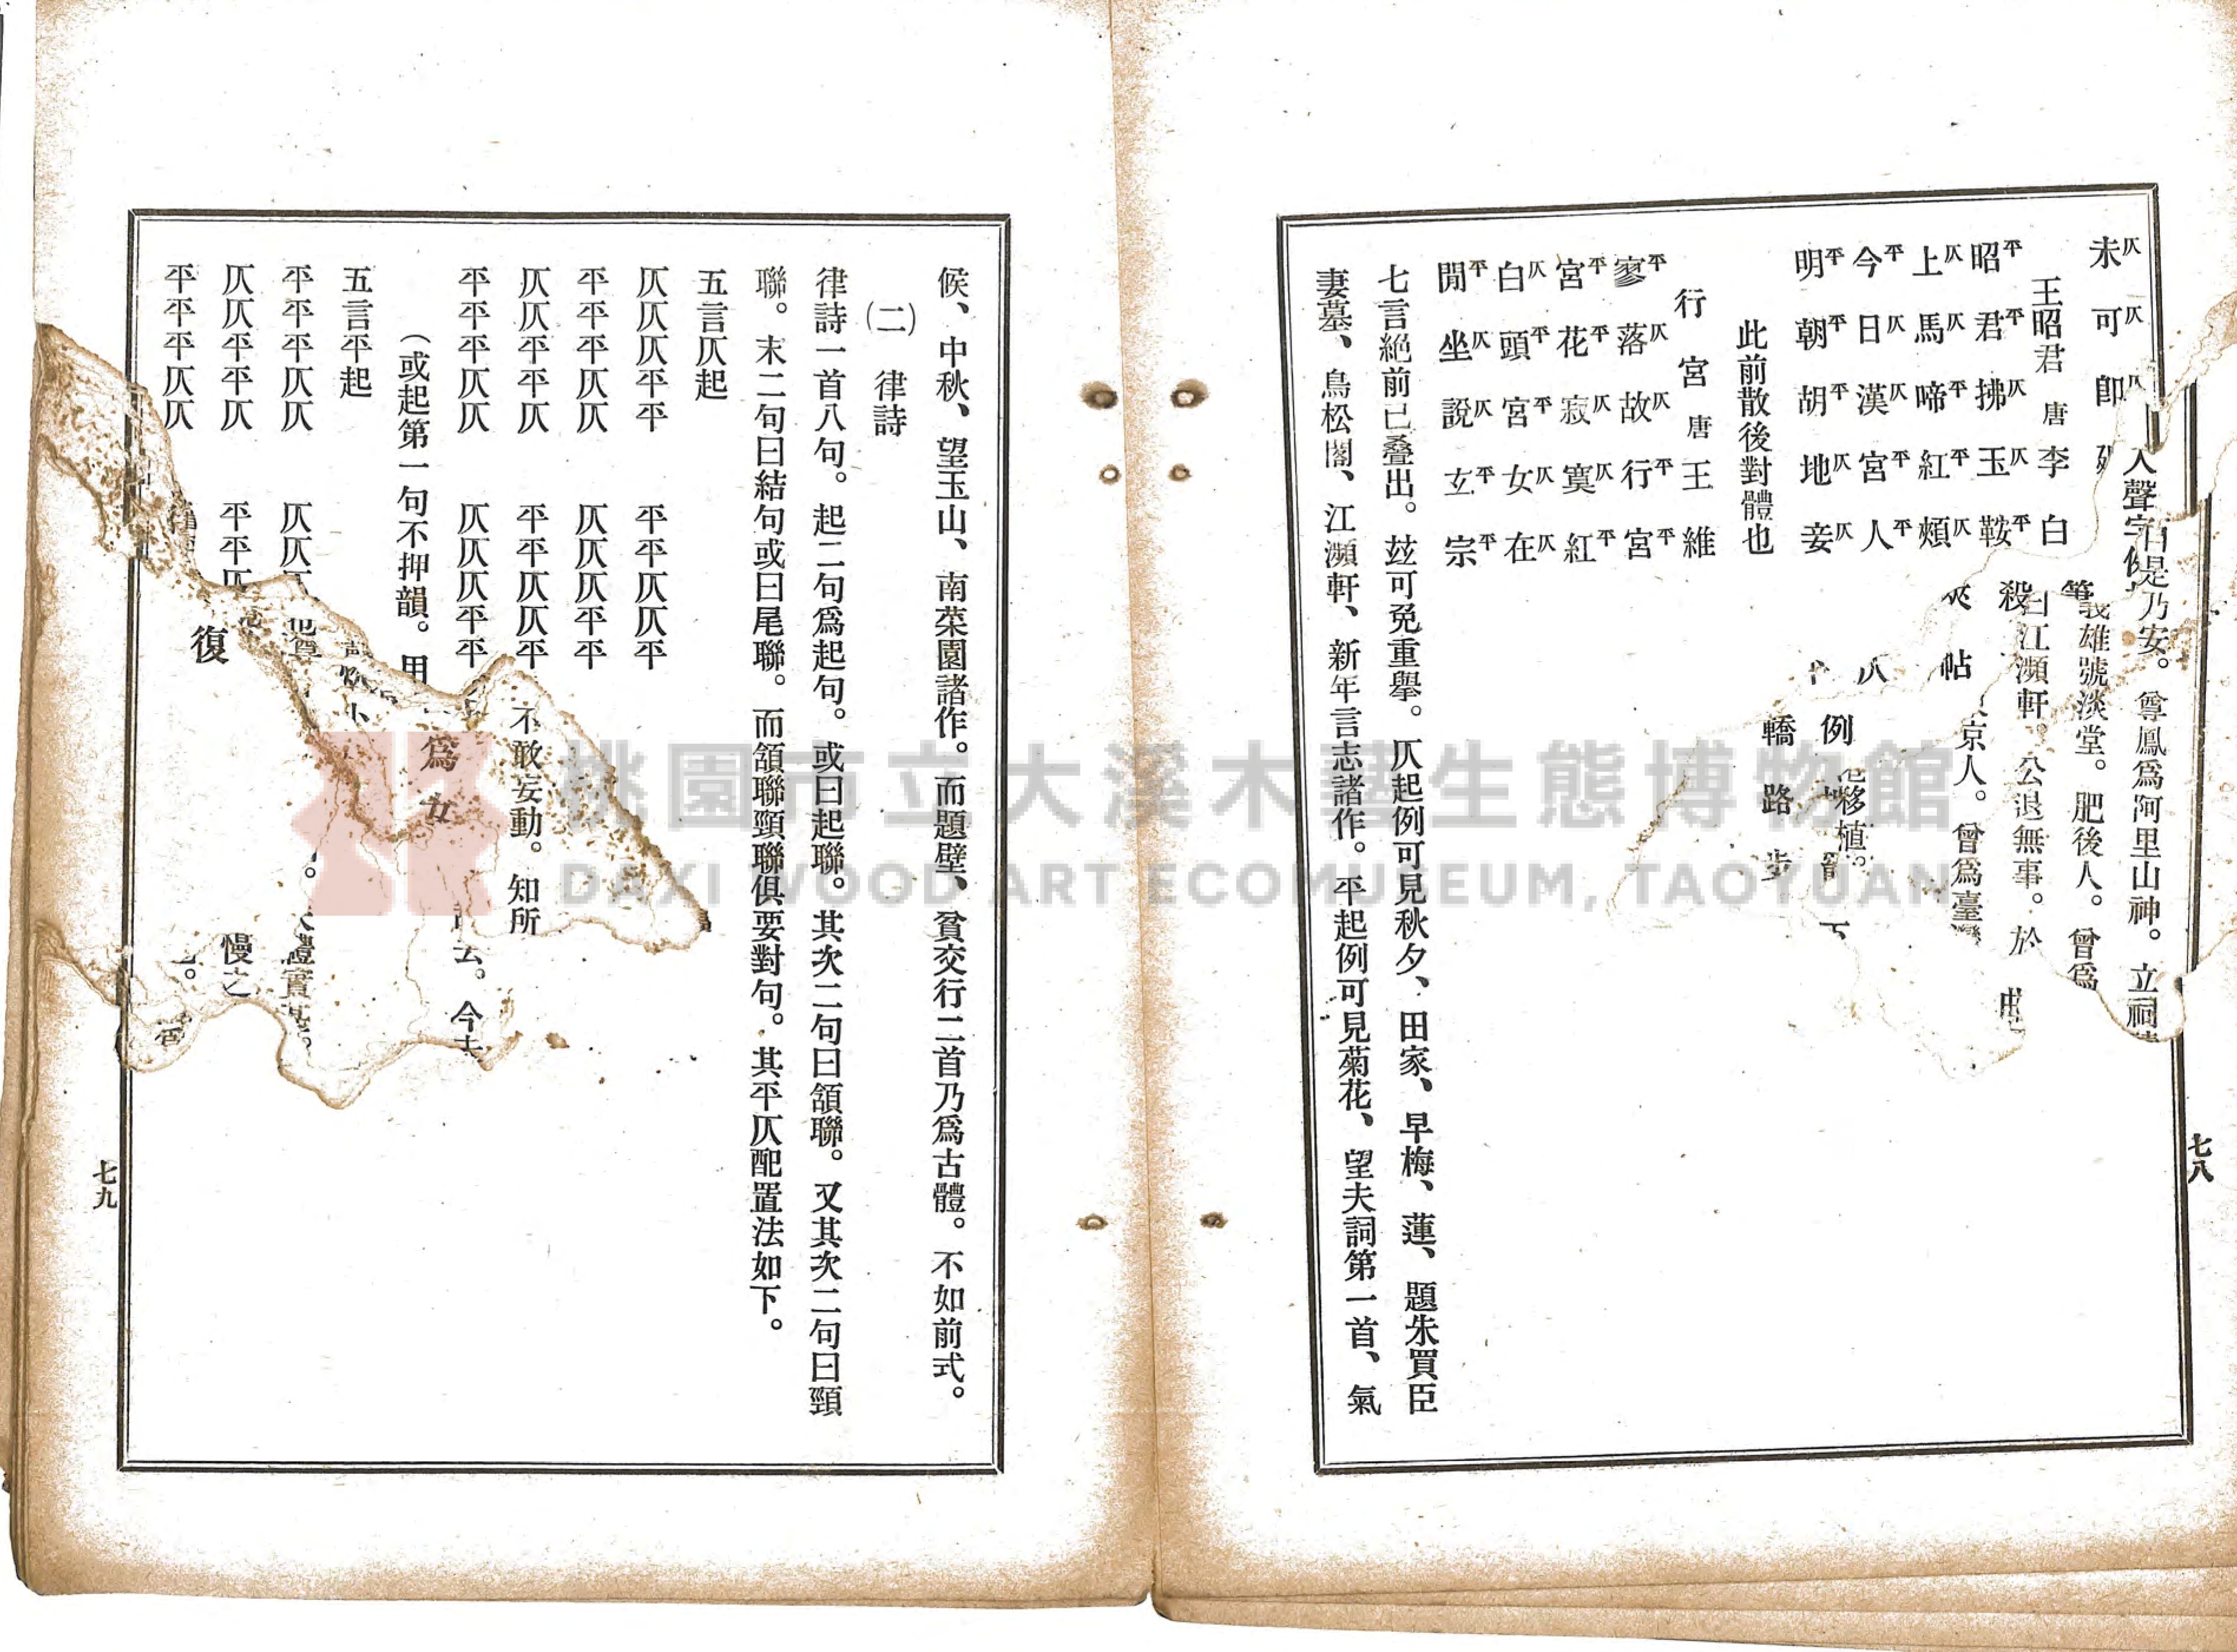 未仄可仄卽仄
王昭君 唐 李白
昭平君平拂仄玉仄鞍平
上仄馬仄啼平紅平頰仄
今平日仄漢仄宮平人平
明平朝平胡平地仄妾仄
此前散後對體也
行宮 唐 王維
寥平落仄故仄行平宮平
宮平花平寂仄寞仄紅平
白仄頭平宮平女仄在仄
閒平坐仄說仄玄平宗平
七言絕前已叠出。玆可免重擧。仄起例可見秋夕、田家、早梅、蓮、題朱買臣
妻墓、鳥松閣、江瀕軒、新年言志諸作。平起例可見菊花、望夫詞第一首、氣
入聲字
是乃安。尊鳳爲阿里山神。立祠
義雄號淡堂。肥後人。曾爲
曰江瀕軒。公退無事。於
京人。曾爲臺灣
殺
帖
例
移植。
轎路步
七八
候、中秋、望玉山、南菜園諸作。而題壁、貧交行二首乃爲古體。不如前式。
(二) 律詩
律詩一首八句。起二句爲起句。或曰起聯。其次二句曰頷聯。又其次二句曰頸
聯。末二句曰結句或曰尾聯。而頷聯頸聯俱要對句。其平仄配置法如下。
五言仄起
仄仄仄平平 平平仄仄平
平平平仄仄 仄仄仄平平
仄仄平平仄 平平仄仄平
平平平仄仄 仄仄仄平平
(或起第一句不押韻。用
五言平起
平平平仄仄 仄仄
仄仄平平仄 平平仄
平平平仄仄
不敢妄動。知所
去。今
爲女
禮實甚。
慢之
復
七九
桃園市立大溪木藝生態博物館
DAXI WOOD ART ECOMUSEUM, TAOYUAN